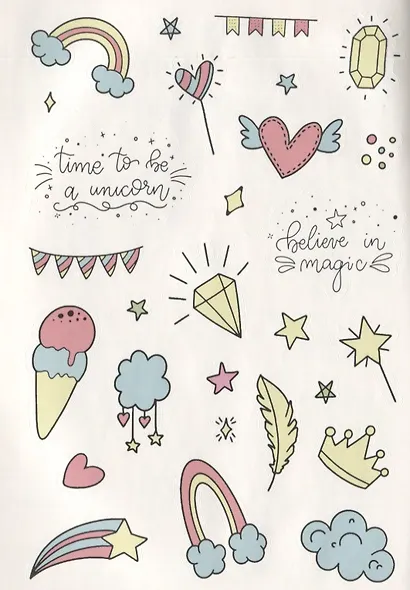 time to be
a unicorn
believe in
magic